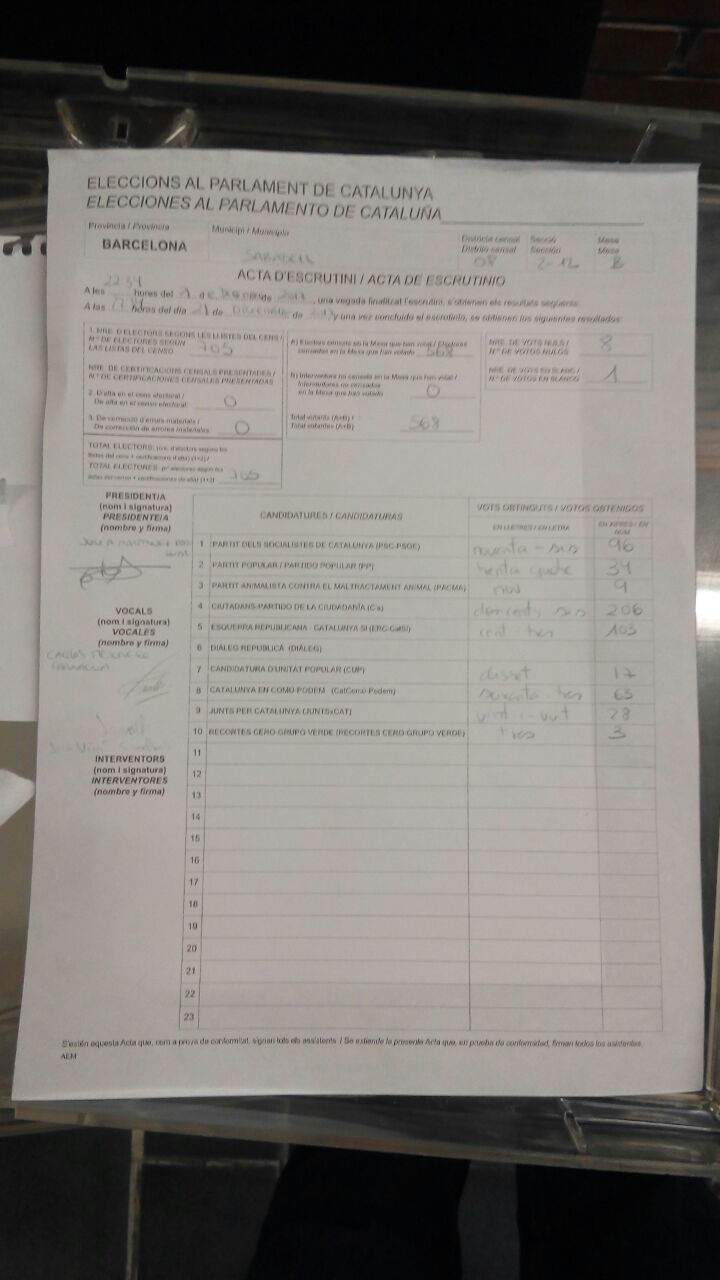 ELECCIONS AL PARLAMENT DE CATALUNYA
ELECCIONES AL PARLAMENTO DE CATALUÑA
Província / Provincia
BARCELONA
Municipi / Municipio
SABADELL
Districte censal
Distrito censal
08
Secció
Sección
2-12
Mesa
Mesa
B
ACTA D'ESCRUTINI / ACTA DE ESCRUTINIO
A les 22:34 hores del 21 de de 2017, una vegada finalitzat l'escrutini, s'obtenen els resultats següents:
A las horas del día 21 de Diciembre de 2017 y una vez concluido el escrutinio, se obtienen los siguientes resultados:
1. NRE. D'ELECTORS SEGONS LES LLISTES DEL CENS /
N.º DE ELECTORES SEGÚN
LAS LISTAS DEL CENSO 705
NRE. DE CERTIFICACIONS CENSALS PRESENTADES /
N.º DE CERTIFICACIONES CENSALES PRESENTADAS
2. D'alta en el cens electoral /
De alta en el censo electoral 0
3. De correcció d'errors materials /
De corrección de errores materiales 0
TOTAL ELECTORS: (nre. d'electors segons les
llistes del cens + certificacions d'alta) (1+2) /
TOTAL ELECTORES: (nº electores según las
listas del censo + certificaciones de alta) (1+2) 705
A) Electors censats en la Mesa que han votat / Electores
censados en la Mesa que han votado 568
B) Interventors no censats en la Mesa que han votat /
Interventores no censados
en la Mesa que han votado 0
Total votants (A+B) /
Total votantes (A+B) 568
NRE. DE VOTS NULS /
N.º DE VOTOS NULOS 8
NRE. DE VOTS EN BLANC /
N.º DE VOTOS EN BLANCO 1
PRESIDENT/A
(nom i signatura)
PRESIDENTE/A
(nombre y firma)
VOCALS
(nom i signatura)
VOCALES
(nombre y firma)
CARLOS
INTERVENTORS
(nom i signatura)
INTERVENTORES
(nombre y firma)
CANDIDATURES / CANDIDATURAS
VOTS OBTINGUTS / VOTOS OBTENIDOS
EN LLETRES / EN LETRA
EN XIFRES / EN NÚM
1 PARTIT DELS SOCIALISTES DE CATALUNYA (PSC-PSOE) noranta-sis 96
2 PARTIT POPULAR / PARTIDO POPULAR (PP) trenta quatre 34
3 PARTIT ANIMALISTA CONTRA EL MALTRACTAMENT ANIMAL (PACMA) nou 9
4 CIUTADANS-PARTIDO DE LA CIUDADANÍA (C's) dorcents sis 206
5 ESQUERRA REPUBLICANA - CATALUNYA SÍ (ERC-CatSí) cent tres 103
6 DIÀLEG REPUBLICÀ (DIÀLEG)
7 CANDIDATURA D'UNITAT POPULAR (CUP) disset 17
8 CATALUNYA EN COMÚ-PODEM (CatComú-Podem) 65
9 JUNTS PER CATALUNYA (JUNTSxCAT) vint-i-vuit 28
10 RECORTES CERO-GRUPO VERDE (RECORTES CERO-GRUPO VERDE) tres 3
11
12
13
14
15
16
17
18
19
20
21
22
23
S'estén aquesta Acta que, com a prova de conformitat, signan tots els assistents / Se extiende la presente Acta que, en prueba de conformidad, firman todos los asistentes.
AEM